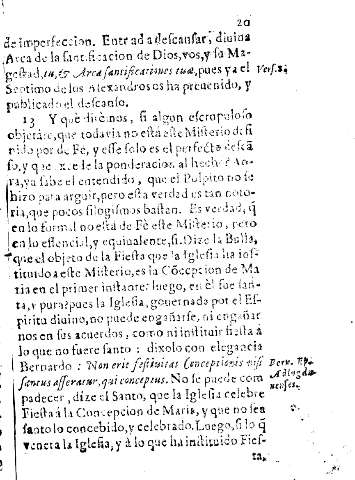 20
de imperfeccion. Entrad a descansar, divina
Arca de la santificacion de Dios, vos, y su Ma-
gestad, tu, & Arca santificationis tuæ, pues ya el
Vers. 8.
Septimo de los Alexandros os ha preuenido, y
publicado el descanso.
13 Y que diremos, si algun escrupuloso
objetare, que todavia no está este Misterio difi
nido por de Fè, y esse solo es el perfecto descã
so, y que la ponderacion al hecho
ra, ya sabe el entendido, que el Pulpito no se
hizo para arguir, pero esta verdad es tan noto-
ria, que pocos silogismos bastan. Es verdad, q̃
en lo formal no està de Fè este Misterio, pero
en lo essencial, y equiualente, si. Dize la Bulla,
que el objeto de la Fiesta que la Iglesia ha ins-
tituido a este Misterio, es la Cõcepcion de Ma
ria en el primer instante: luego, en èl fue san-
ta, y pura; pues la Iglesia, gouernada por el Es-
piritu diuino, no puede engañarse, ni engañar
nos en sus acuerdos, como ni instituir fiesta à
lo que no fuere santo: dixolo con elegancia
Bernardo: Non erit festiuitas Conceptionis nisi
Bern. Ep.
sanctus asseratur, qui conceptus. No se puede com
Ad lugdu
padecer, dize el Santo, que la Iglesia celebre
nenses.
Fiesta à la Concepcion de Maria, y que no sea
santo lo concebido, y celebrado. Luego, si lo q̃
venera la Iglesia, y à lo que ha instituido Fies-
ta,